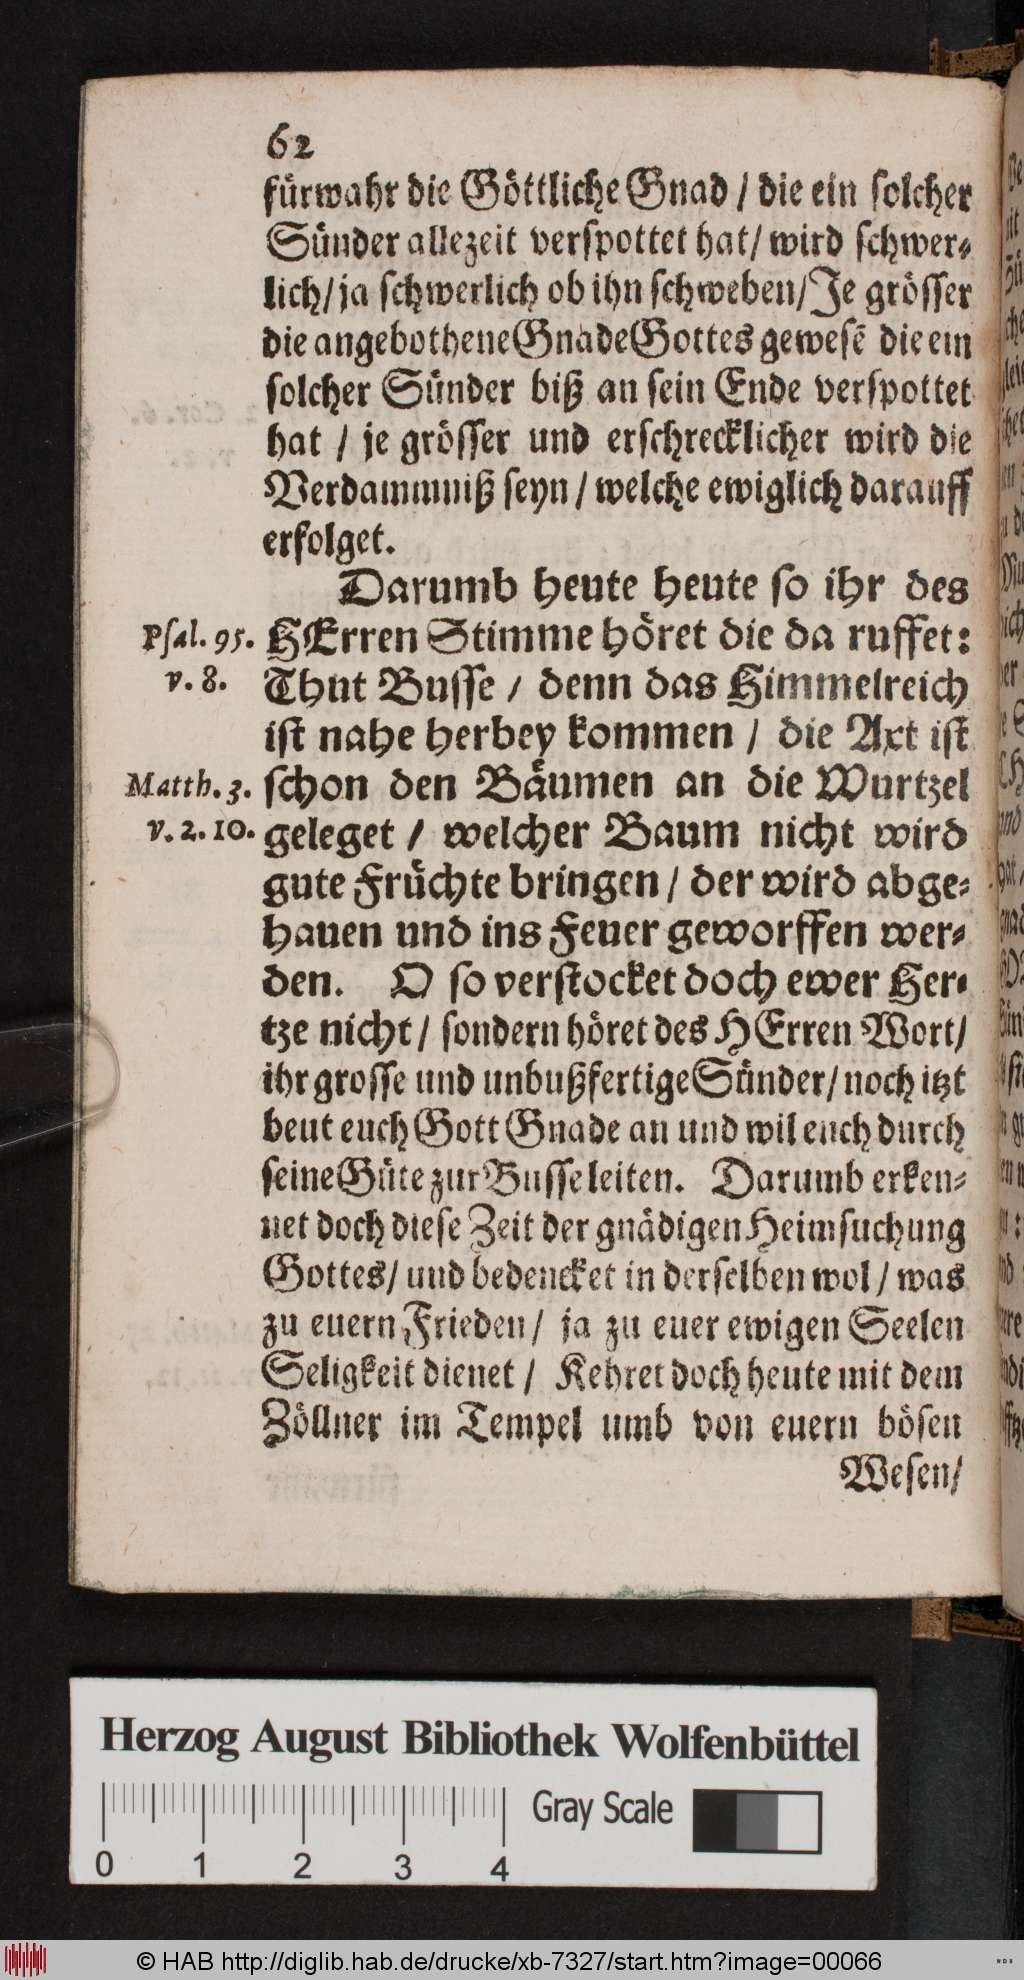 62
fürwahr die Göttliche Gnad / die ein solcher
Sünder allezeit verspottet hat / wird schwer-
lich / ja schwerlich ob ihn schweben / Je grösser
die angebothene Gnade Gottes gewesẽ die ein
solcher Sünder biß an sein Ende verspottet
hat / je grösser und erschrecklicher wird die
Verdammniß seyn / welche ewiglich darauff
erfolget.
Darumb heute heute so ihr des
Psal. 95. HErren Stimme höret die da ruffet:
v. 8. Thut Busse / denn das Himmelreich
ist nahe herbey kommen / die Axt ist
Matth. 3. schon den Bäumen an die Wurtzel
v. 2. 10. geleget / welcher Baum nicht wird
gute Früchte bringen / der wird abge-
hauen und ins Feuer geworffen wer-
den. O so verstocket doch ewer Her-
tze nicht / sondern höret des HErren Wort /
ihr grosse und unbußfertige Sünder / noch itzt
beut euch Gott Gnade an und wil euch durch
seine Güte zur Busse leiten. Darumb erken-
net doch diese Zeit der gnädigen Heimsuchung
Gottes / und bedencket in derselben wol / was
zu euern Frieden / ja zu euer ewigen Seelen
Seligkeit dienet / Kehret doch heute mit dem
Zöllner im Tempel umb von euern bösen
Wesen /
Herzog August Bibliothek Wolfenbüttel
Gray Scale
0 1 2 3 4
© HAB http://diglib.hab.de/drucke/xb-7327/start.htm?image=00066